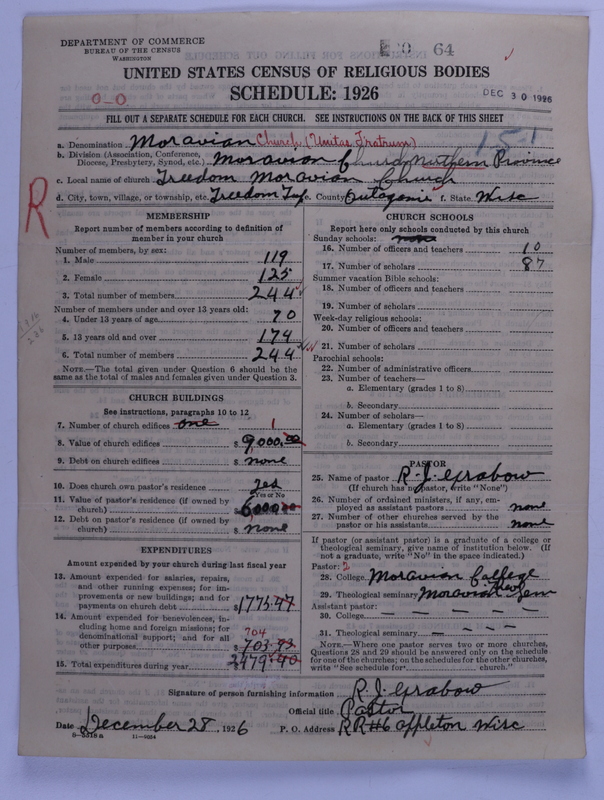 DEPARTMENT OF COMMERCE
BUREAU OF THE CENSUS
WASHINGTON
64
UNITED STATES CENSUS OF RELIGIOUS BODIES
SCHEDULE: 1926
0-0
DEC 30 1926
FILL OUT A SEPARATE SCHEDULE FOR EACH CHURCH. SEE INSTRUCTIONS ON THE BACK OF THIS SHEET
15-1
a. Denomination Moravian Church (Unitas Fratrum)
b. Division (Association, Conference, Diocese, Presbytery, Synod, etc.) Moravian Church Northern Province
c. Local name of church Freedom Moravian Church
d. City, town, village, or township, etc. Freedom Twp e. County Outagamie f. State Wisc
R
MEMBERSHIP
Report number of members according to definition of
member in your church
Number of members, by sex:
1. Male 119
2. Female 125
3. Total number of members 244
Number of members under and over 13 years old:
4. Under 13 years of age 70
5. 13 years old and over 174
6. Total number of members 244
NOTE.—The total given under Question 6 should be the
same as the total of males and females given under Question 3.
CHURCH BUILDINGS
See instructions, paragraphs 10 to 12
7. Number of church edifices one 1
8. Value of church edifices $ 9,000.00
9. Debt on church edifices $ none
10. Does church own pastor's residence yes
Yes or No
11. Value of pastor's residence (if owned by
church) $ 6000.00
12. Debt on pastor's residence (if owned by
church) $ none
EXPENDITURES
Amount expended by your church during last fiscal year
13. Amount expended for salaries, repairs,
and other running expenses; for im-
provements or new buildings; and for
payments on church debt $ 1775.47
14. Amount expended for benevolences, in-
cluding home and foreign missions; for
denominational support; and for all
704
other purposes $ 703.93
15. Total expenditures during year 2479.40
CHURCH SCHOOLS
Report here only schools conducted by this church
Sunday schools:
16. Number of officers and teachers 10
17. Number of scholars 87
Summer vacation Bible schools:
18. Number of officers and teachers
19. Number of scholars
Week-day religious schools:
20. Number of officers and teachers
21. Number of scholars
Parochial schools:
22. Number of administrative officers
23. Number of teachers—
a. Elementary (grades 1 to 8)
b. Secondary
24. Number of scholars—
a. Elementary (grades 1 to 8)
b. Secondary
PASTOR
25. Name of pastor R. J. Grabow
(If church has no pastor, write "None")
26. Number of ordained ministers, if any, em-
ployed as assistant pastors none
27. Number of other churches served by the
pastor or his assistants none
If pastor (or assistant pastor) is a graduate of a college or
theological seminary, give name of institution below. (If
not a graduate, write "No" in the space indicated.)
Pastor: 2
28. College Moravian College
29. Theological seminary Moravian Theo Sem
Assistant pastor:
30. College
31. Theological seminary
NOTE.—Where one pastor serves two or more churches,
Questions 28 and 29 should be answered only on the schedule
for one of the churches; on the schedules for the other churches,
write "See schedule for church."
Signature of person furnishing information R. J. Grabow
Official title Pastor
Date December 28, 1926 P. O. Address RR#6 Appleton Wisc
9-5518a 11-5054